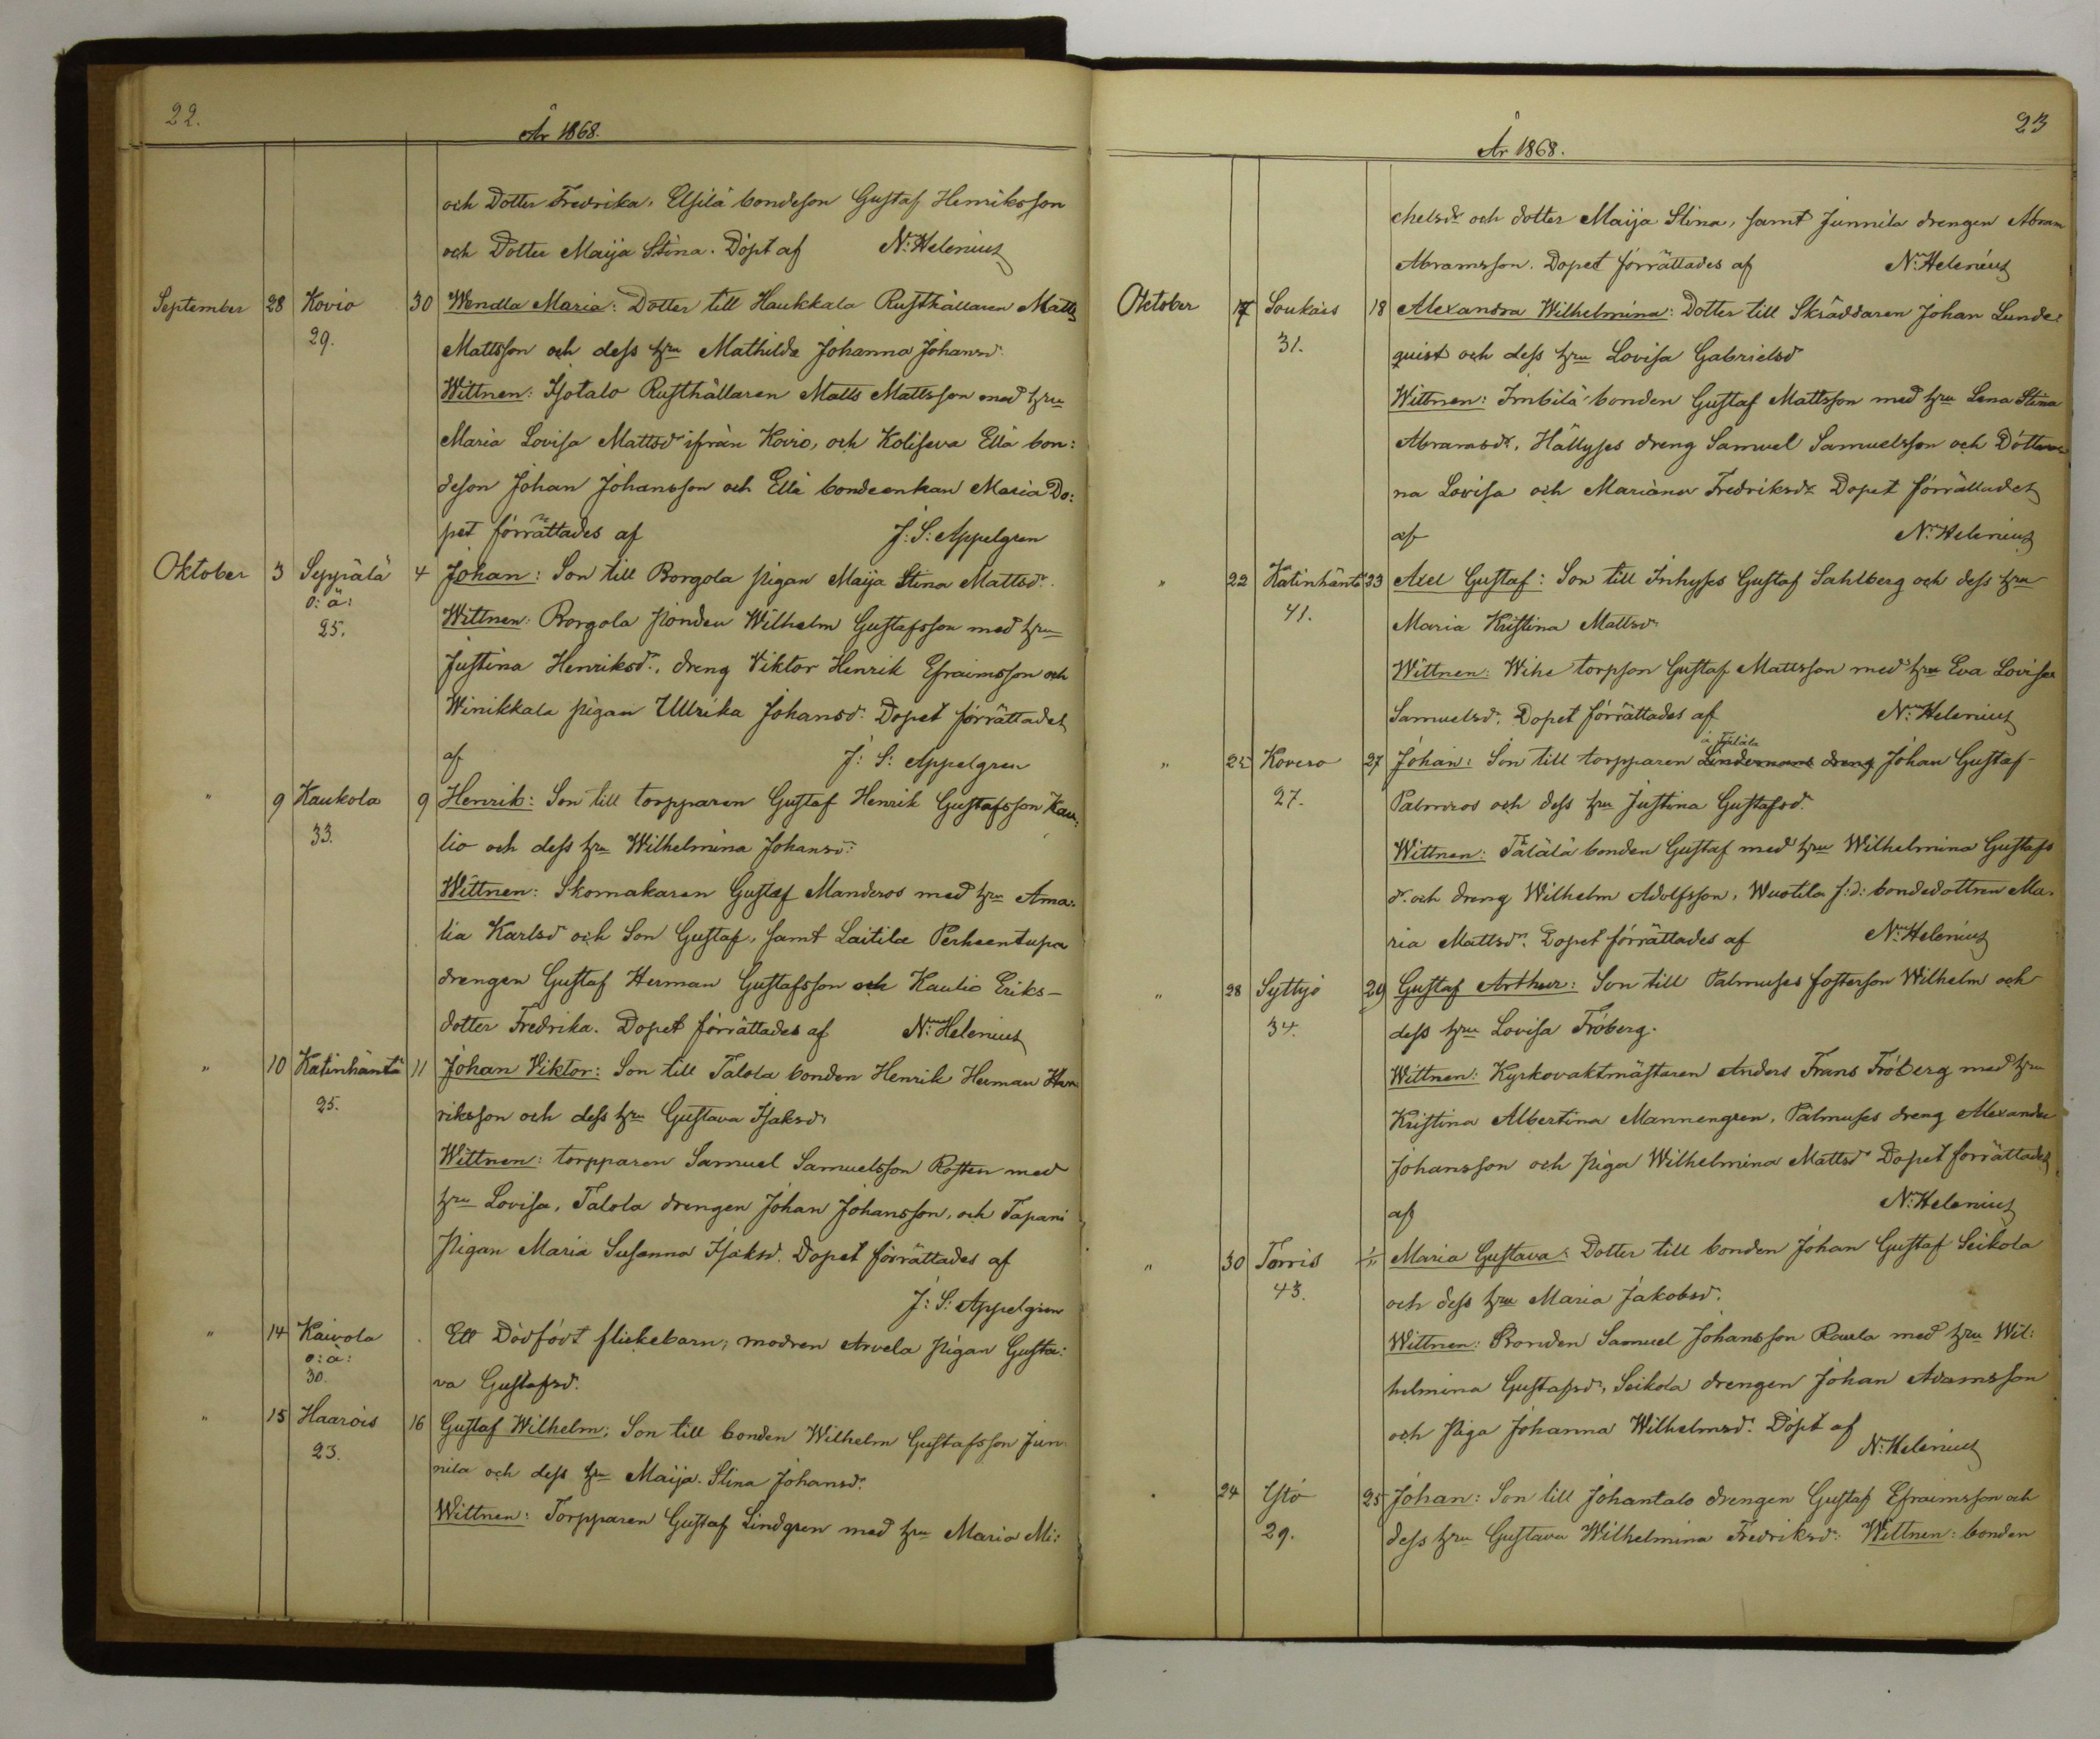 22.
År 1868.
och Dotter Fredrika, Elsilä bondeson Gustaf Henriksson
och Dotter Maija Stina. Döpt af N: Helenius
September 28 Kovio 30 Wendla Maria: Dotter till Haukkala Rusthållaren Matts
29. Mattsson och dess hru Mathilda Johanna Johansd:
Wittnen: Isotalo Rusthållaren Matts Mattsson med hru
Maria Lovisa Mattsd ifrån Kovio, och Koliseva Ellä bon:
deson Johan Johansson och Ellä bondeenkan Maria Do:
pet förrättades af J: S: Appelgren
Oktober 3 Seppälä 4 Johan: Son till Borgola pigan Maija Stina Mattsdr.
o: ä:
25. Wittnen: Borgola bonden Wilhelm Gustafsson med hru
Justina Henriksd:, dreng Viktor Henrik Efraimsson och
Winikkala pigan Ullrika Johansd: Dopet förrättades
af J: S: Appelgren
" 9 Kaukola 9 Henrik: Son till torpparen Gustaf Henrik Gustafsson Kau:
33. lio och dess hru Wilhelmina Johansd:
Wittnen: Skomakaren Gustaf Manderos med hru Ama:
lia Karlsd och Son Gustaf, samt Laitila Perheentupa
drengen Gustaf Herman Gustafsson och Kaulio Eriks-
dotter Fredrika. Dopet förrättades af N: Helenius
" 10 Katinhäntä 11 Johan Viktor: Son till Talola bonden Henrik Herman Hen
25. riksson och dess hru Gustava Isaksdr
Wittnen: torpparen Samuel Samuelsson Rosten med
hru Lovisa, Talola drengen Johan Johansson, och Tapani
Pigan Maria Susanna Isaksd. Dopet förrättades af
J: S: Appelgren
" 14 Kaivola Ett Dödfödt flickebarn; modren Arvela Pigan Gusta:
o: ä:
30. va Gustafsd.
" 15 Haarois 16 Gustaf Wilhelm; Son till bonden Wilhelm Gustafsson Jun
23. nila och dess hru Maija Stina Johansd.
Wittnen: Torpparen Gustaf Lindgren med hru Maria Mi:
23
År 1868.
chelsdr och dotter Maija Stina, samt Junnila drengen Abram
Abramsson. Dopet förrättades af N: Helenius
Oktober 17 Soukais 18 Alexandra Wilhelmina: Dotter till Skräddaren Johan Lunde:
31. quist och dess hru Lovisa Gabrielsd
Wittnen: Imbilä bonden Gustaf Mattsson med hru Lena Stina
Abramsdr, Hällyses dreng Samuel Samuelsson och Döttrar
na Lovisa och Mariana Fredriksdr Dopet förrättades
af N: Helenius
" 22 Katinhäntä 23 Axel Gustaf: Son till Inhyses Gustaf Sahlberg och dess hru
41. Maria Kristina Mattsdr
Wittnen: Wihe torpson Gustaf Mattsson med hru Eva Lovisa
Samuelsdr. Dopet förrättades af N: Helenius
å Tälälä
" 25 Kovero 27 Johan: Son till torpparen Lindemans dreng Johan Gustaf-
27. Palmroos och dess hru Justina Gustafsd.
Wittnen: Tälälä bonden Gustaf med hru Wilhelmina Gustafs
dr. och dreng Wilhelm Adolfsson, Wuotila f:d: bondedottren Ma.
ria Mattsdr. Dopet förrättades af N: Helenius
" 28 Syttyö 29 Gustaf Arthur: Son till Palmuses fosterson Wilhelm och
34. dess hru Lovisa Fröberg.
Wittnen: Kyrkovaktmästaren Anders Frans Fröberg med hru
Kristina Albertina Mannengren, Palmuses dreng Alexander
Johansson och Piga Wilhelmina Mattsd Dopet förrättades
af N: Helenius
" 30 Torris 1/11 Maria Gustava: Dotter till bonden Johan Gustaf Seikola
43. och dess hru Maria Jakobsd.
Wittnen: Bonden Samuel Johansson Raula med hru Wil:
helmina Gustafsd, Seikola drengen Johan Adamsson
och Piga Johanna Wilhelmsd. Döpt af
N: Helenius
" 24 Ylö 25 Johan: Son till Johantalo drengen Gustaf Efraimsson och
29. dess hru Gustava Wilhelmina Fredriksd: Wittnen: bonden